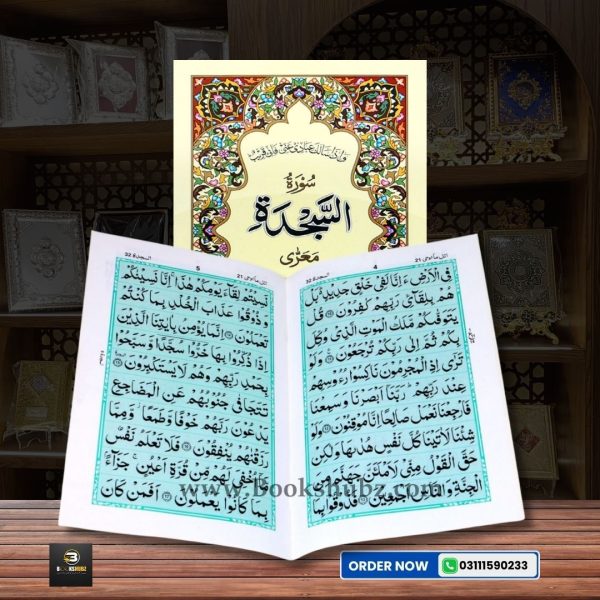 وَإِذَا سَأَلَكَ عِبَادِي عَنِّي فَإِنِّي قَرِيبٌ
سُوْرَةُ
السَّجْدَةِ
مَعَرّٰی
السجدة ٣٢
4
اتل ما اوحی 21
فِي الْاَرْضِ ءَاِنَّا لَفِيْ خَلْقٍ جَدِيْدٍ ۬ بَلْ
هُمْ بِلِقَآئِ رَبِّهِمْ كٰفِرُوْنَ ۝ قُلْ
يَتَوَفّٰىكُمْ مَّلَكُ الْمَوْتِ الَّذِيْ وُكِّلَ
بِكُمْ ثُمَّ اِلٰى رَبِّكُمْ تُرْجَعُوْنَ ۝ وَلَوْ
تَرٰٓى اِذِ الْمُجْرِمُوْنَ نَاكِسُوْا رُءُوْسِهِمْ
عِنْدَ رَبِّهِمْ ۭ رَبَّنَآ اَبْصَرْنَا وَسَمِعْنَا
فَارْجِعْنَا نَعْمَلْ صَالِحًا اِنَّا مُوْقِنُوْنَ ۝ وَلَوْ
شِئْنَا لَاٰتَيْنَا كُلَّ نَفْسٍ هُدٰىهَا وَلٰكِنْ
حَقَّ الْقَوْلُ مِنِّيْ لَاَمْلَئَنَّ جَهَنَّمَ مِنَ
الْجِنَّةِ وَالنَّاسِ اَجْمَعِيْنَ ۝ فَذُوْقُوْا بِمَا
السجدة 32
5
اتل ما اوحی 21
نَسِيْتُمْ لِقَآءَ يَوْمِكُمْ هٰذَا ۚ اِنَّا نَسِيْنٰكُمْ
وَذُوْقُوْا عَذَابَ الْخُلْدِ بِمَا كُنْتُمْ
تَعْمَلُوْنَ ۝ اِنَّمَا يُؤْمِنُ بِاٰيٰتِنَا الَّذِيْنَ
اِذَا ذُكِّرُوْا بِهَا خَرُّوْا سُجَّدًا وَّسَبَّحُوْا
بِحَمْدِ رَبِّهِمْ وَهُمْ لَا يَسْتَكْبِرُوْنَ ۝
تَتَجَافٰى جُنُوْبُهُمْ عَنِ الْمَضَاجِعِ
يَدْعُوْنَ رَبَّهُمْ خَوْفًا وَّطَمَعًا ۡ وَّمِمَّا
رَزَقْنٰهُمْ يُنْفِقُوْنَ ۝ فَلَا تَعْلَمُ نَفْسٌ
مَّآ اُخْفِيَ لَهُمْ مِّنْ قُرَّةِ اَعْيُنٍ ۚ جَزَآءًۢ
بِمَا كَانُوْا يَعْمَلُوْنَ ۝ اَفَمَنْ كَانَ
www.Bookshubz.com
BOOKSHUBZ
ORDER NOW 03111590233